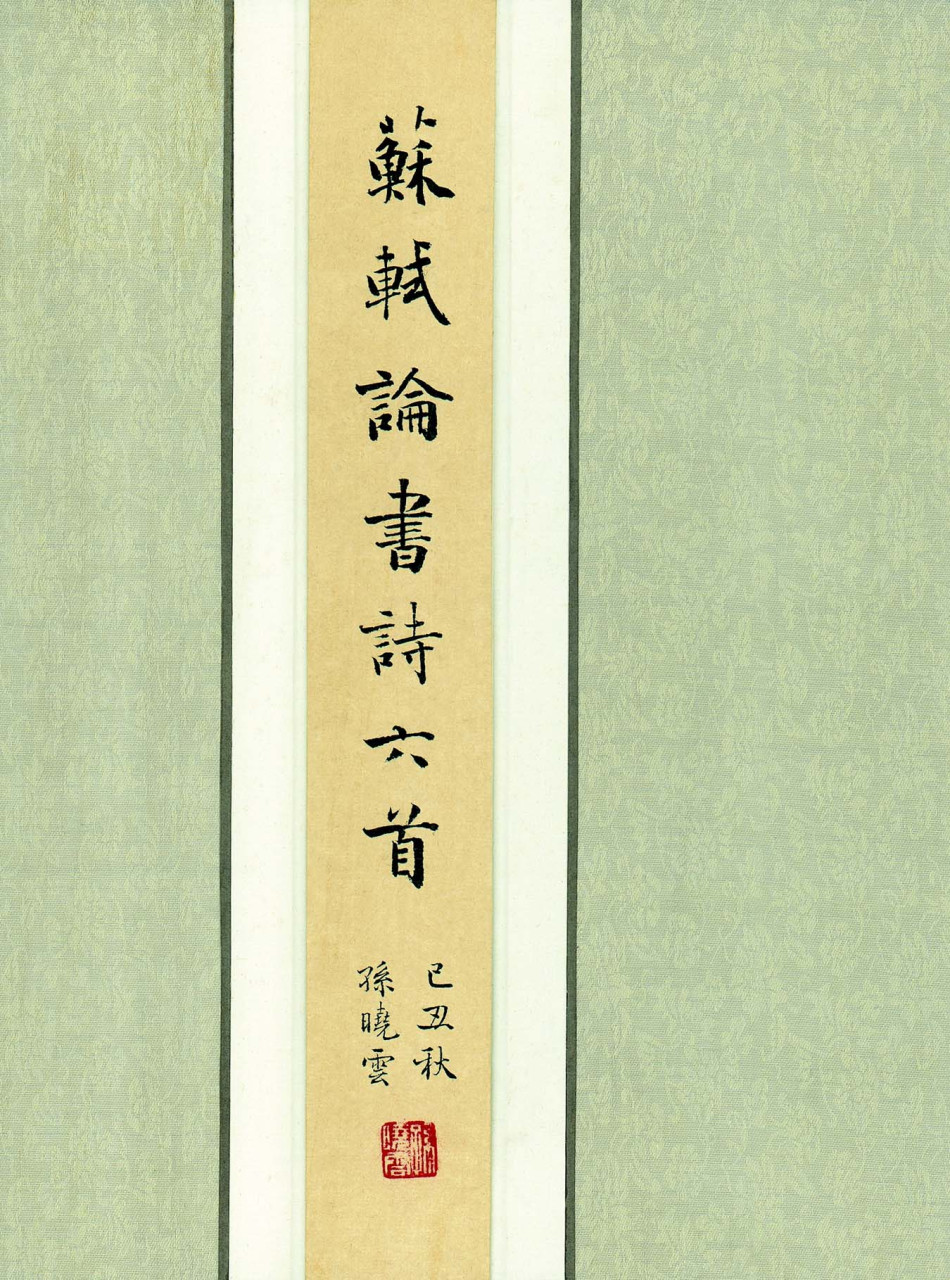 蘇軾論書詩六首
己丑秋
孫曉雲